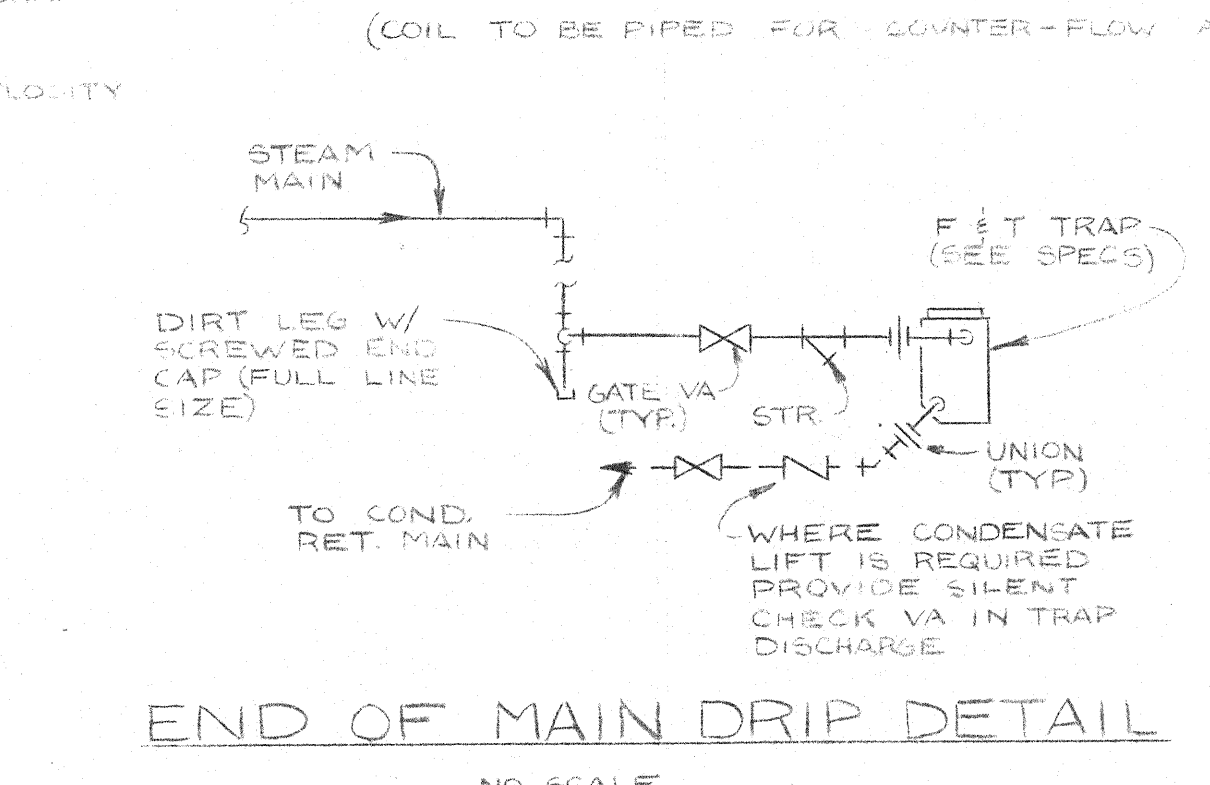 (COIL TO BE PIPED FOR COUNTER-FLOW
STEAM
MAIN
F & T TRAP
(SEE SPECS)
DIRT LEG W/
SCREWED END
CAP (FULL LINE
SIZE)
GATE VA
(TYP.)
STR.
UNION
(TYP)
TO COND.
RET. MAIN
WHERE CONDENSATE
LIFT IS REQUIRED
PROVIDE SILENT
CHECK VA IN TRAP
DISCHARGE
END OF MAIN DRIP DETAIL
NO SCALE